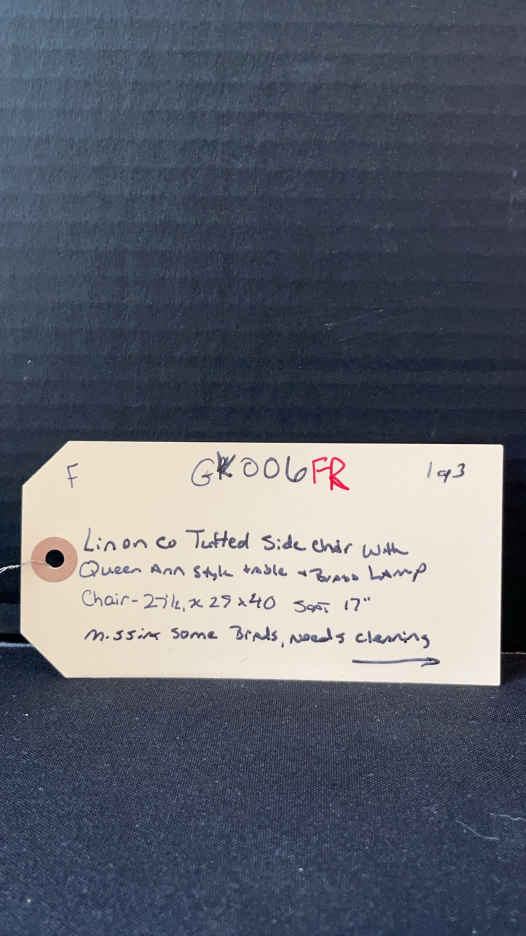 F GK006FR 1 of 3
Linon co Tufted Side chair with
Queen Ann Style table + Brass Lamp
Chair - x 29 x 40 Seat 17"
missing some Brads, needs cleaning